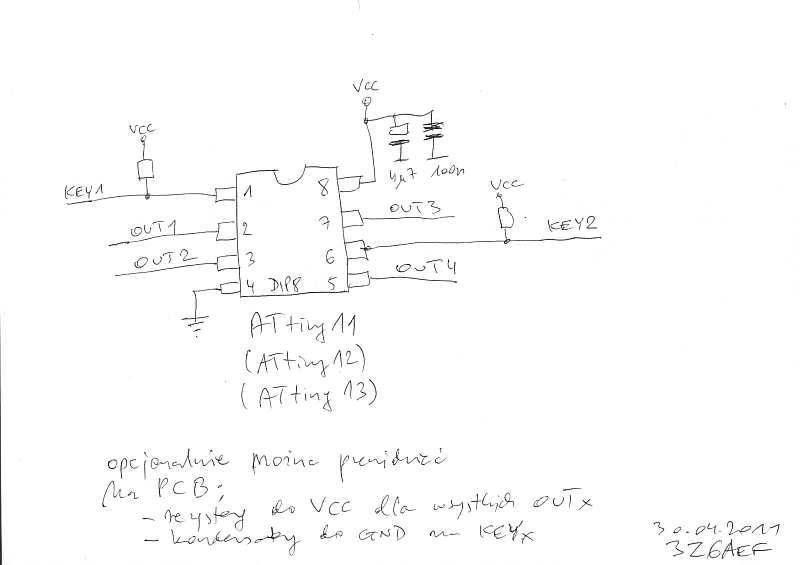 VCC
VCC
KEY1
4µ7 100n
VCC
1 8
OUT1 2 7 OUT3
KEY2
OUT2 3 6
4 DIP8 5 OUT4
ATtiny11
(ATtiny12)
(ATtiny 13)
opcjonalnie można przewidzieć
na PCB:
- rezystory do VCC dla wszystkich OUTx
- kondensatory do GND na KEYx
30.04.2011
3Z6AEF